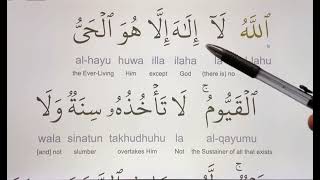 ٱللَّهُ لَآ إِلَـٰهَ إِلَّا هُوَ ٱلْحَىُّ
al-hayu huwa illa ilaha la lahu
the Ever-Living Him except God (there is) no
ٱلْقَيُّومُ ۚ لَا تَأْخُذُهُۥ سِنَةٌ وَلَا
wala sinatun takhudhuhu la al-qayumu
[and] not slumber overtakes Him Not the Sustainer of all that exists